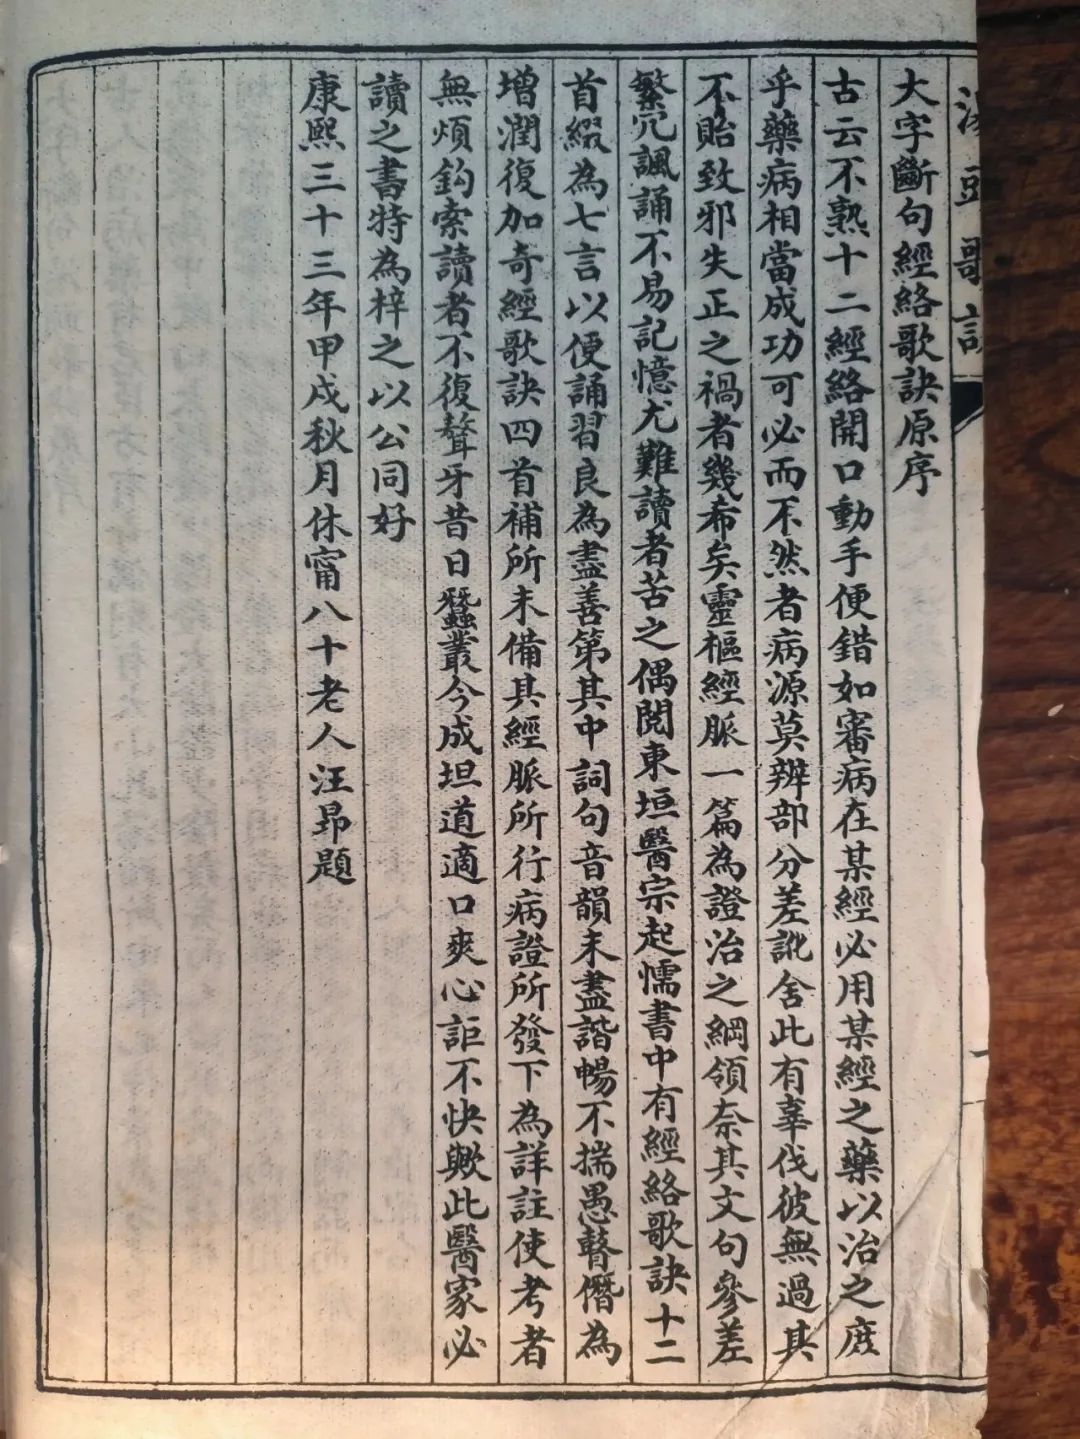 湯頭歌訣
大字斷句經絡歌訣原序
古云不熟十二經絡開口動手便錯如審病在某經必用某經之藥以治之庶
乎藥病相當成功可必而不然者病源莫辨部分差訛舍此有辜伐彼無過其
不貽致邪失正之禍者幾希矣靈樞經脈一篇為證治之綱領奈其文句參差
繁冗諷誦不易記憶尤難讀者苦之偶閱東垣醫宗起懦書中有經絡歌訣十二
首綴為七言以便誦習良為盡善第其中詞句音韻未盡諧暢不揣愚瞽僭為
增潤復加奇經歌訣四首補所未備其經脈所行病證所發下為詳註使考者
無煩鈎索讀者不復聱牙昔日蠶叢今成坦道適口爽心詎不快歟此醫家必
讀之書特為梓之以公同好
康熙三十三年甲戌秋月休甯八十老人汪昂題